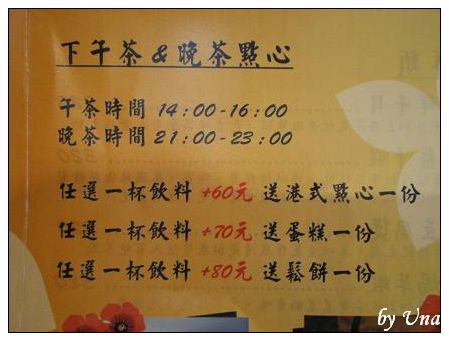 下午茶&晚茶點心
午茶時間 14:00-16:00
晚茶時間 21:00-23:00
任選一杯飲料 +60元 送港式點心一份
任選一杯飲料 +70元 送蛋糕一份
任選一杯飲料 +80元 送鬆餅一份
by Una